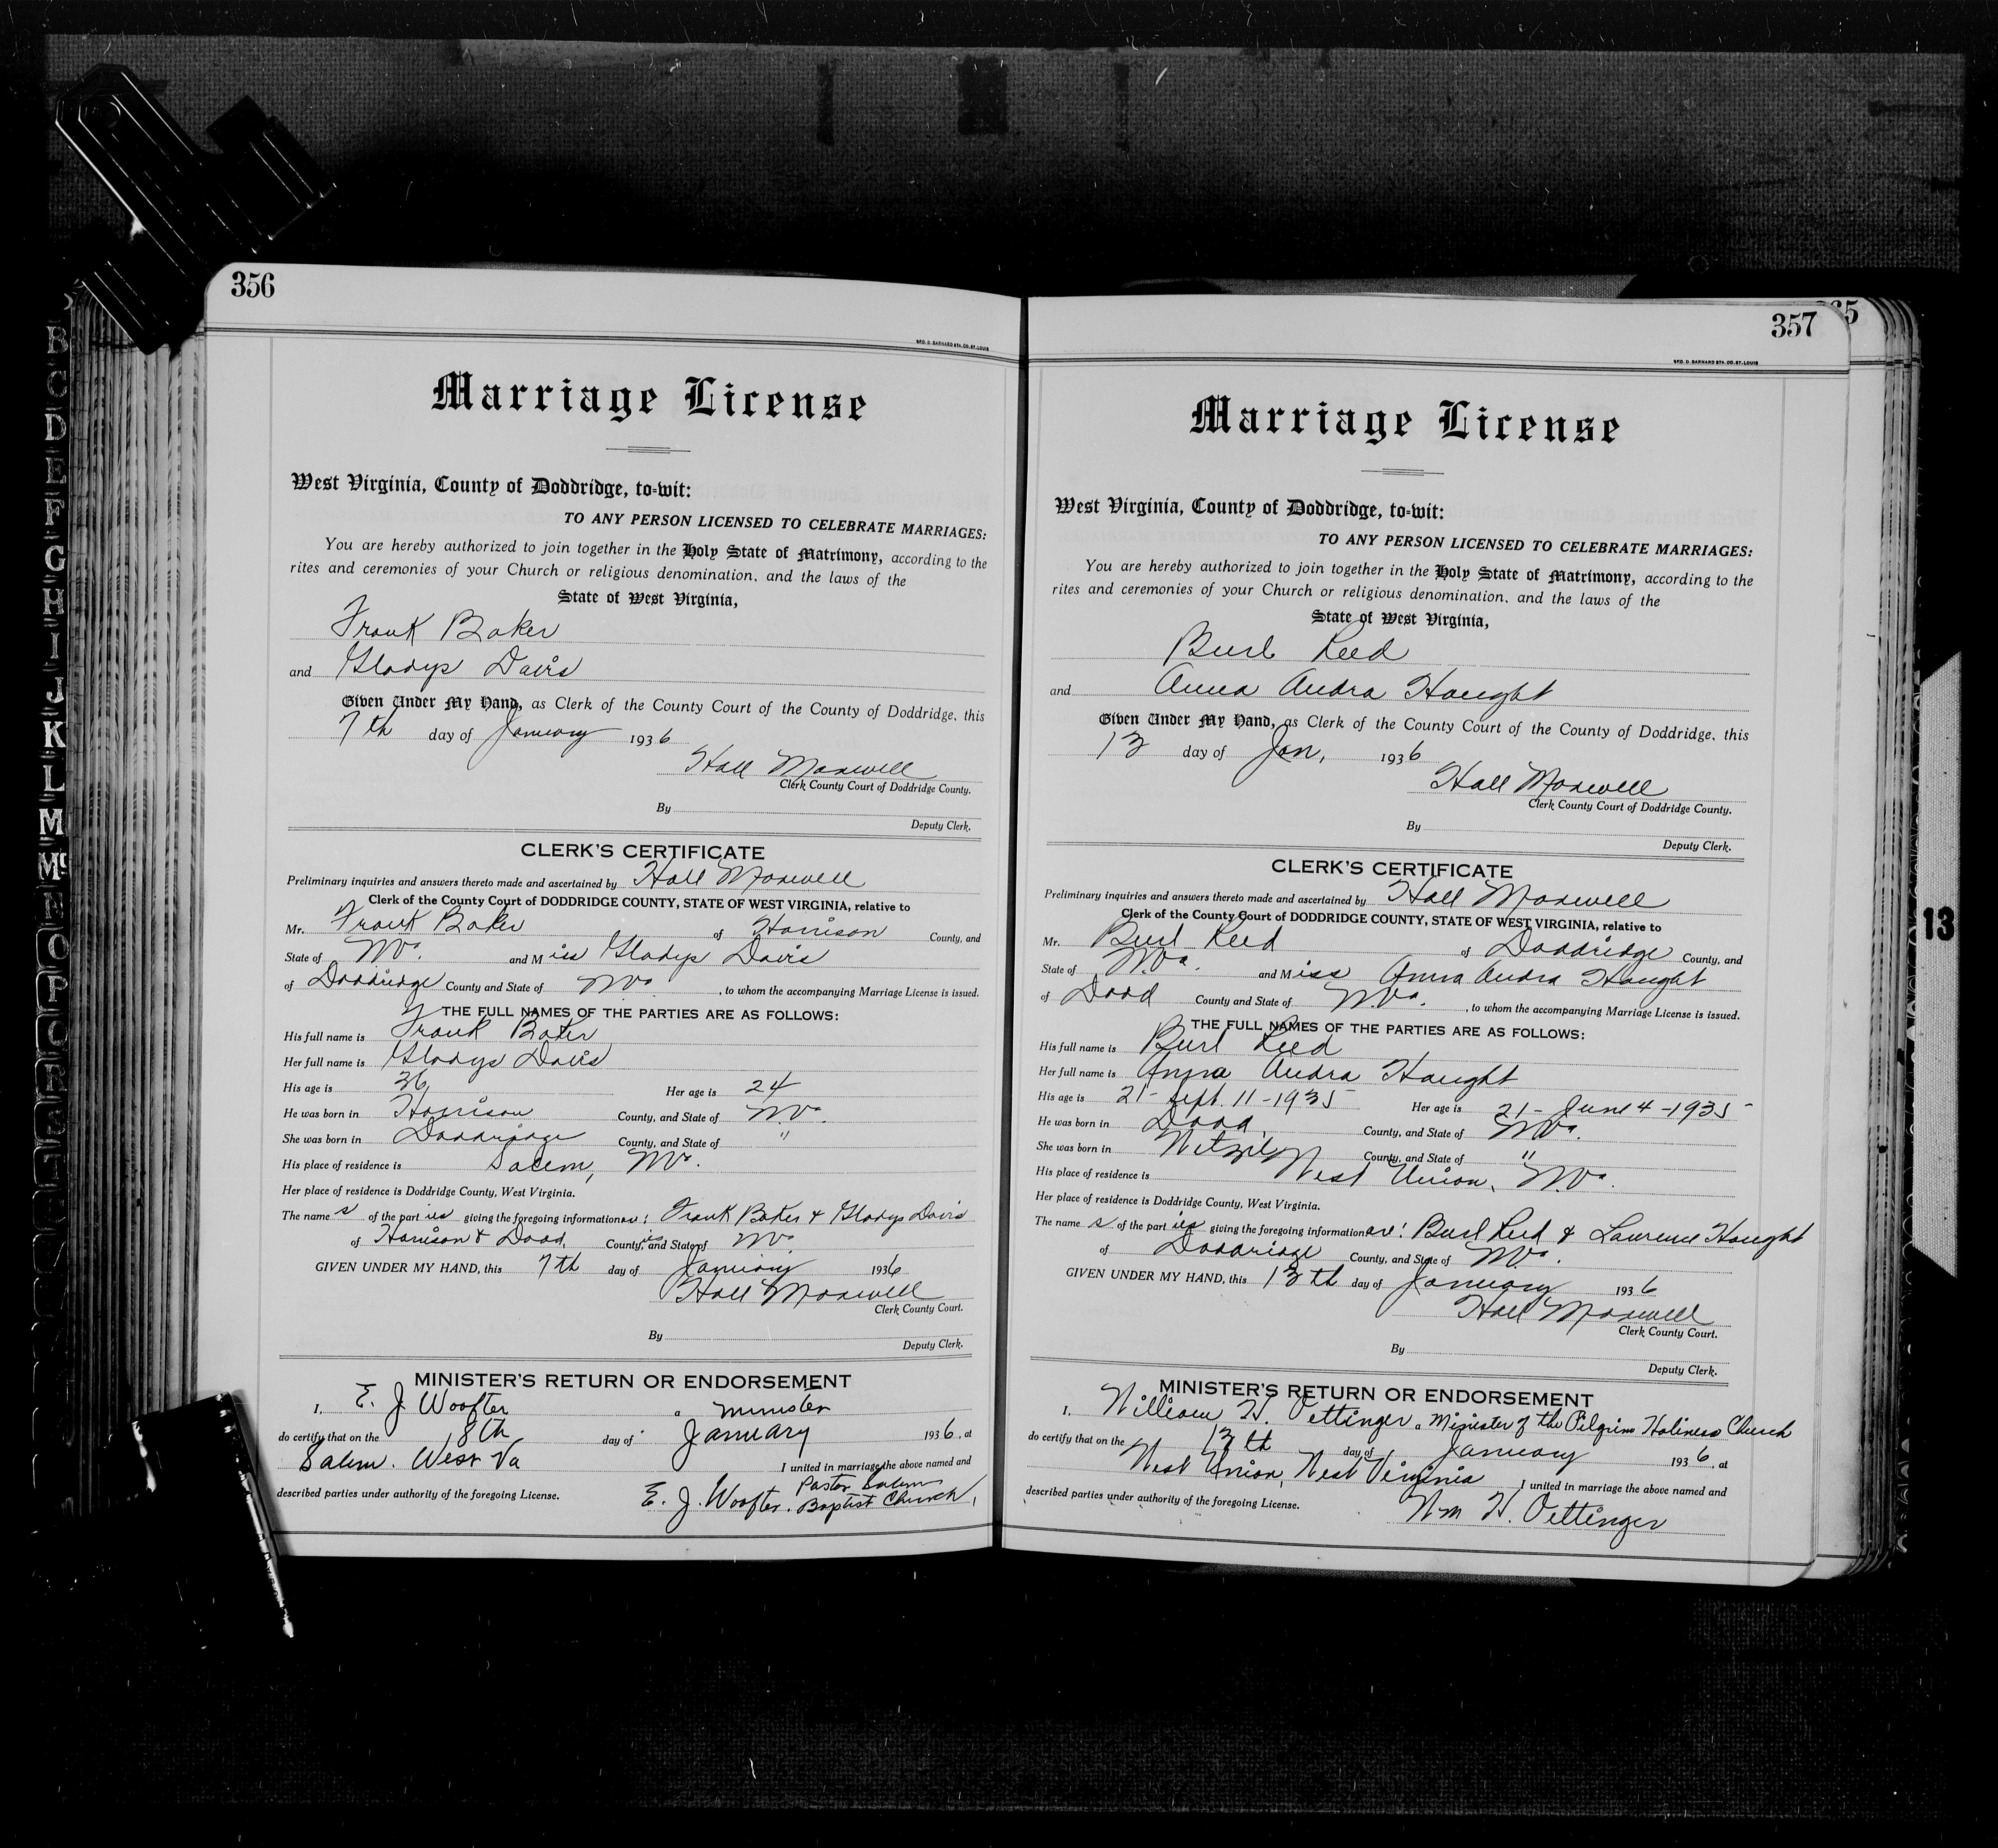 356
GEO. D. BARNARD STA. CO. ST. LOUIS
Marriage License
West Virginia, County of Doddridge, to-wit:
TO ANY PERSON LICENSED TO CELEBRATE MARRIAGES:
You are hereby authorized to join together in the Holy State of Matrimony, according to the
rites and ceremonies of your Church or religious denomination, and the laws of the
State of West Virginia,
Frank Baker
and Gladys Davis
Given Under My Hand, as Clerk of the County Court of the County of Doddridge, this
7th day of January 1936
Hall Maxwell
Clerk County Court of Doddridge County.
By
Deputy Clerk.
CLERK'S CERTIFICATE
Preliminary inquiries and answers thereto made and ascertained by Hall Maxwell
Clerk of the County Court of DODDRIDGE COUNTY, STATE OF WEST VIRGINIA, relative to
Mr. Frank Baker of Harrison County, and
State of WVa. and Miss Gladys Davis
of Doddridge County and State of WVa , to whom the accompanying Marriage License is issued.
THE FULL NAMES OF THE PARTIES ARE AS FOLLOWS:
His full name is Frank Baker
Her full name is Gladys Davis
His age is 36 Her age is 24
He was born in Harrison County, and State of W.Va.
She was born in Doddridge County, and State of "
His place of residence is Salem, WVa.
Her place of residence is Doddridge County, West Virginia.
The names of the parties giving the foregoing information are: Frank Baker & Gladys Davis
of Harrison & Dodd. Counties, and State of WVa.
GIVEN UNDER MY HAND, this 7th day of January 1936
Hall Maxwell
Clerk County Court.
By
Deputy Clerk.
MINISTER'S RETURN OR ENDORSEMENT
I, E. J. Woofter a minister
do certify that on the 8th day of January 1936, at
Salem. West Va I united in marriage the above named and
described parties under authority of the foregoing License. E. J. Woofter. Pastor Salem
Baptist Church,
357
GEO. D. BARNARD STA. CO. ST. LOUIS
Marriage License
West Virginia, County of Doddridge, to-wit:
TO ANY PERSON LICENSED TO CELEBRATE MARRIAGES:
You are hereby authorized to join together in the Holy State of Matrimony, according to the
rites and ceremonies of your Church or religious denomination, and the laws of the
State of West Virginia,
Burl Reed
and Anna Audra Haught
Given Under My Hand, as Clerk of the County Court of the County of Doddridge, this
13 day of Jan, 1936
Hall Maxwell
Clerk County Court of Doddridge County.
By
Deputy Clerk.
CLERK'S CERTIFICATE
Preliminary inquiries and answers thereto made and ascertained by Hall Maxwell
Clerk of the County Court of DODDRIDGE COUNTY, STATE OF WEST VIRGINIA, relative to
Mr. Burl Reed of Doddridge County, and
State of W.Va. and Miss Anna Audra Haught
of Dodd County and State of W.Va. , to whom the accompanying Marriage License is issued.
THE FULL NAMES OF THE PARTIES ARE AS FOLLOWS:
His full name is Burl Reed
Her full name is Anna Audra Haught
His age is 21 - Sept. 11 - 1935 Her age is 21 - June 4 - 1935
He was born in Dodd. County, and State of WVa.
She was born in Wetzel County, and State of "
His place of residence is West Union, W.Va.
Her place of residence is Doddridge County, West Virginia.
The names of the parties giving the foregoing information are: Burl Reed & Lawrence Haught
of Doddridge County, and State of WVa.
GIVEN UNDER MY HAND, this 13th day of January 1936
Hall Maxwell
Clerk County Court.
By
Deputy Clerk.
MINISTER'S RETURN OR ENDORSEMENT
I, William H. Oettinger a Minister of the Pilgrim Holiness Church
do certify that on the 13th day of January 1936, at
West Union, West Virginia I united in marriage the above named and
described parties under authority of the foregoing License.
Wm H. Oettinger
B
C
D
E
F
G
H
I
J
K
L
M
Mc
13